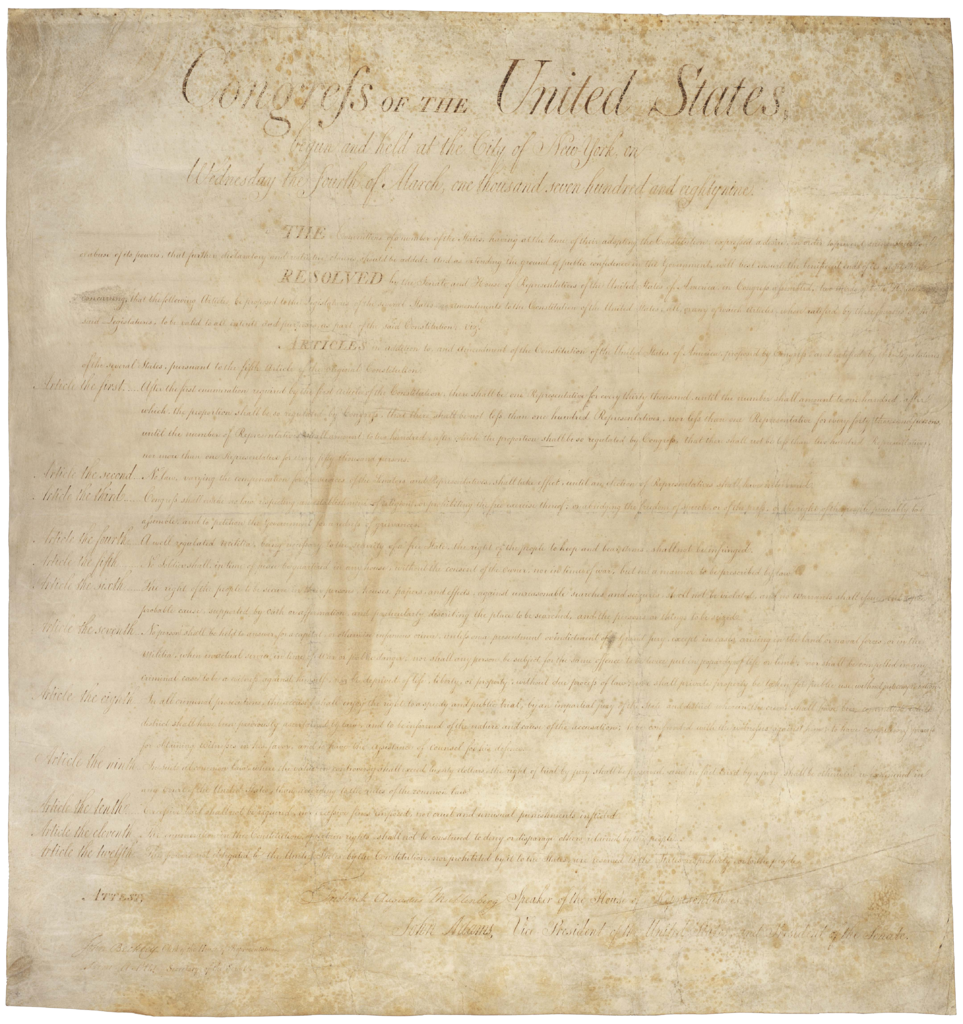 Congress OF THE United States,
begun and held at the City of New-York, on
Wednesday the fourth of March, one thousand seven hundred and eighty nine.
THE of the States, having at the time of their adopting the Constitution, expressed a desire, in order to prevent
abuse of its powers, that further declaratory and restrictive clauses should be added: And as extending the ground of public confidence in the Government, will best ensure the beneficent ends of
RESOLVED by the Senate and House of Representatives of the United States of America, in Congress assembled, two thirds of
concurring, that the following Articles be proposed to the Legislatures of the several States, as amendments to the Constitution of the United States, all, or any of which Articles, when ratified by three fourths of
said Legislatures, to be valid to all intents and purposes, as part of the said Constitution; viz.
ARTICLES in addition to, and Amendment of the Constitution of the United States of America, proposed by Congress, and ratified by the Legislatures
of the several States, pursuant to the fifth Article of the original Constitution.
Article the first... After the first enumeration required by the first article of the Constitution, there shall be one Representative for every thirty thousand, until the number shall amount to one hundred, after
which, the proportion shall be so regulated by Congress, that there shall be not less than one hundred Representatives, nor less than one Representative for every forty thousand persons,
until the number of Representatives shall amount to two hundred, after which the proportion shall be so regulated by Congress, that there shall not be less than two hundred Representatives,
nor more than one Representative for every fifty thousand persons.
Article the second... No law, varying the compensation for the services of the Senators and Representatives, shall take effect, until an election of Representatives shall have intervened.
Article the third... Congress shall make no law respecting an establishment of religion, or prohibiting the free exercise thereof; or abridging the freedom of speech, or of the press; or the right of the people peaceably to
assemble, and to petition the Government for a redress of grievances.
Article the fourth... A well regulated Militia, being necessary to the security of a free State, the right of the people to keep and bear Arms, shall not be infringed.
Article the fifth... No Soldier shall, in time of peace be quartered in any house, without the consent of the owner, nor in time of war, but in a manner to be prescribed by law.
Article the sixth... The right of the people to be secure in their persons, houses, papers, and effects, against unreasonable searches and seizures, shall not be violated, and no Warrants shall issue, but upon
probable cause, supported by oath or affirmation, and particularly describing the place to be searched, and the persons or things to be seized.
Article the seventh... No person shall be held to answer for a capital, or otherwise infamous crime, unless on a presentment or indictment of a Grand Jury, except in cases arising in the land or naval forces, or in the
Militia, when in actual service in time of War or public danger; nor shall any person be subject for the same offence to be twice put in jeopardy of life or limb; nor shall be compelled in any
criminal case to be a witness against himself, nor be deprived of life, liberty, or property, without due process of law; nor shall private property be taken for public use, without just compensation.
Article the eighth... In all criminal prosecutions, the accused shall enjoy the right to a speedy and public trial, by an impartial jury of the State and district wherein the crime shall have been committed, which
district shall have been previously ascertained by law, and to be informed of the nature and cause of the accusation; to be confronted with the witnesses against him; to have compulsory process
for obtaining witnesses in his favor, and to have the assistance of counsel for his defence.
Article the ninth... In suits at common law, where the value in controversy shall exceed twenty dollars, the right of trial by jury shall be preserved, and no fact tried by a jury, shall be otherwise re-examined in
any Court of the United States, than according to the rules of the common law.
Article the tenth... Excessive bail shall not be required, nor excessive fines imposed, nor cruel and unusual punishments inflicted.
Article the eleventh... The enumeration in the Constitution, of certain rights, shall not be construed to deny or disparage others retained by the people.
Article the twelfth... The powers not delegated to the United States by the Constitution, nor prohibited by it to the States, are reserved to the States respectively, or to the people.
ATTEST,
Frederick Augustus Muhlenberg Speaker of the House of Representatives
John Adams, Vice President of the United States, and President of the Senate.
John Beckley,
Secretary of the Senate